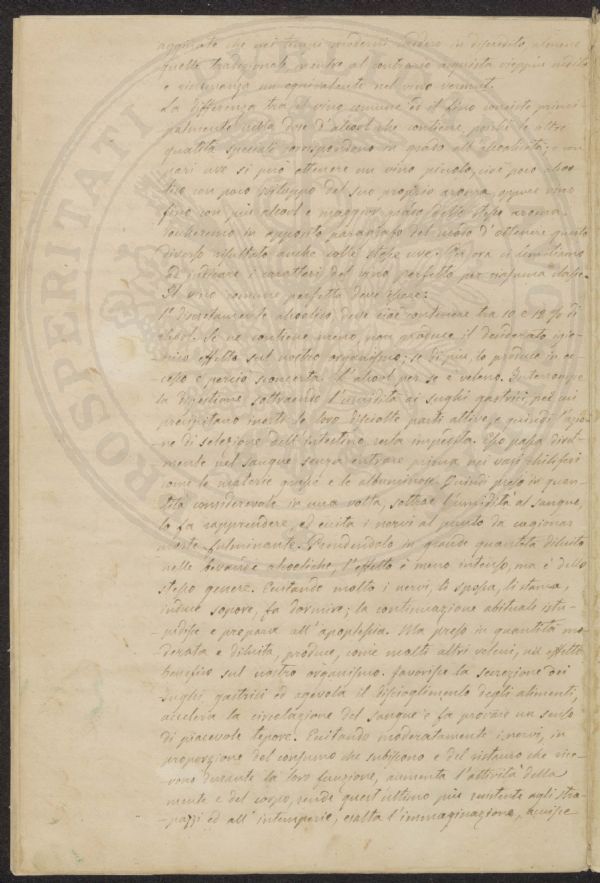 aggiunte che nei tempi moderni caddero in discredito, almeno
quelle tradizionale mentre al contrario acquista vieppiù
e rinvenenza un equivalente nel vino vermut.
La differenza tra il vino comune ed il fino consiste princi-
palmente nella dose d'alcool che contiene, poiché le altre
qualità speciali corrispondono in grado all'alcoolicità; e con
pari uve si può ottenere un vino piccolo, cioè poco alcoo-
lico con poco sviluppo del suo proprio aroma, oppure vino
fino con più alcool e maggior grado dello stesso aroma.
in apposito paragrafo del modo d'ottenere questo
diverso risultato anche colle stesse uve. Per ora ci limitiamo
ad indicare i caratteri del vino perfetto per ciascuna classe.
Il vino comune perfetto deve essere:
1° Discretamente alcoolico, deve cioè contenere tra 10 e 12 % di
alcool. Se ne contiene meno, non produce il desiderato igie-
nico effetto sul nostro organismo; se di più, lo produce in ec-
-cesso e perciò sconcerta. L'alcool per se è veleno. Interrompe
la digestione, sottraendo l'umidità ai sughi gastrici, per cui
precipitano inerti le loro disciolte parti attive, e quindi l'azio-
ne di selezione dell'intestino resta impedita. Esso passa diret-
tamente nel sangue senza entrare prima nei vasi chiliferi
come le materie grasse e le albuminose. Quindi preso in quan-
tità considerevole in una volta, sottrae l'umidità al sangue,
lo fa rapprendere, ed eccita i nervi al punto da cagionar
morte fulminante. Prendendolo in grande quantità diluito
nelle bevande alcooliche, l'effetto è meno intenso, ma è dello
stesso genere. Eccitando molto i nervi, li spossa, li stanca,
induce sopore, fa dormire; la continuazione abituale istu-
-pidisce e prepara all'apoplessia. Ma preso in quantità mo-
derata e diluita, produce, come molti altri veleni, un effetto
benefico sul nostro organismo. Favorisce la secrezione dei
sughi, gastrici ed agevola il discioglimento degli alimenti,
accelera la circolazione del sangue e fa provare un senso
di piacevole tepore. Eccitando moderatamente i nervi, in
proporzione del consumo che subiscono e del ristauro che rice-
-vono durante la loro funzione, aumenta l'attività della
mente e del corpo, rende quest'ultimo più resistente agli stra-
-pazzi ed all'intemperie, esalta l'immaginazione,
PROSPERITATI PUBLICAE